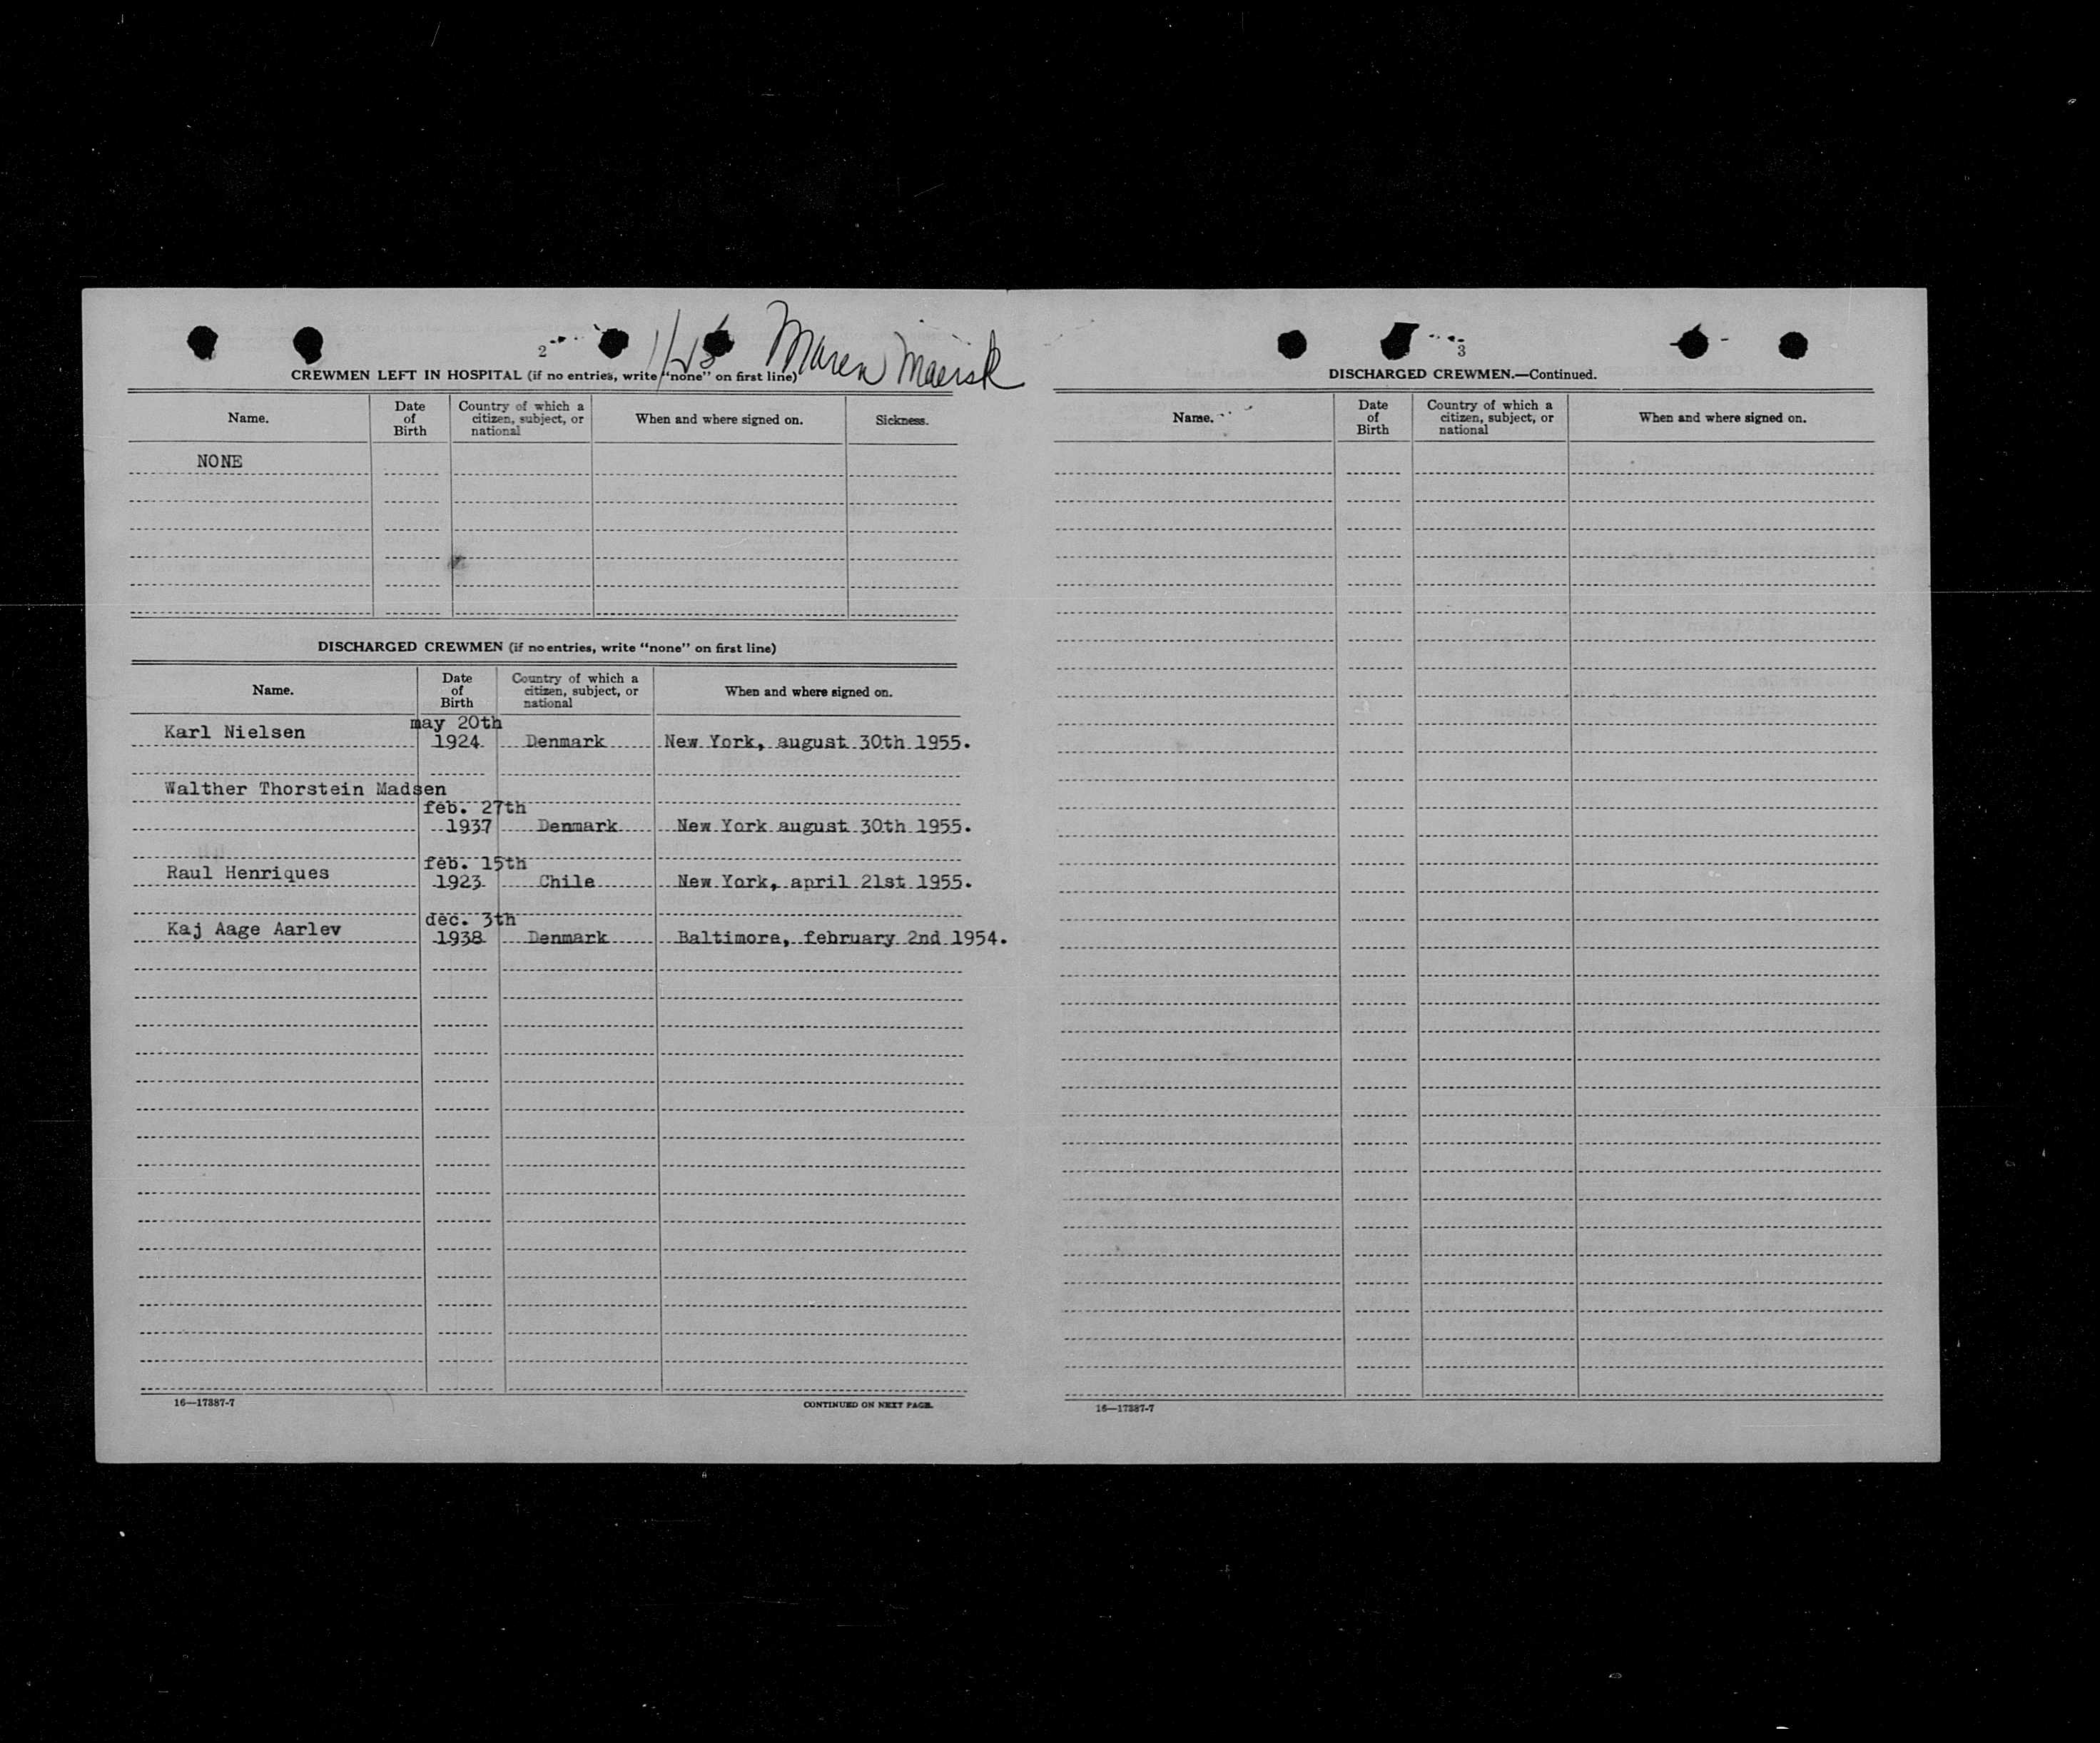 2
Maren Maersk
CREWMEN LEFT IN HOSPITAL (if no entries, write "none" on first line)
Name. Date of Birth Country of which a citizen, subject, or national When and where signed on. Sickness.
NONE
DISCHARGED CREWMEN (if no entries, write "none" on first line)
Name. Date of Birth Country of which a citizen, subject, or national When and where signed on.
Karl Nielsen may 20th 1924 Denmark New York, august 30th 1955.
Walther Thorstein Madsen
feb. 27th 1937 Denmark New York august 30th 1955.
Raul Henriques feb. 15th 1923 Chile New York, april 21st 1955.
Kaj Aage Aarlev dec. 3th 1938 Denmark Baltimore, february 2nd 1954.
16—17387-7 CONTINUED ON NEXT PAGE.
3
DISCHARGED CREWMEN.—Continued.
Name. Date of Birth Country of which a citizen, subject, or national When and where signed on.
16—17387-7